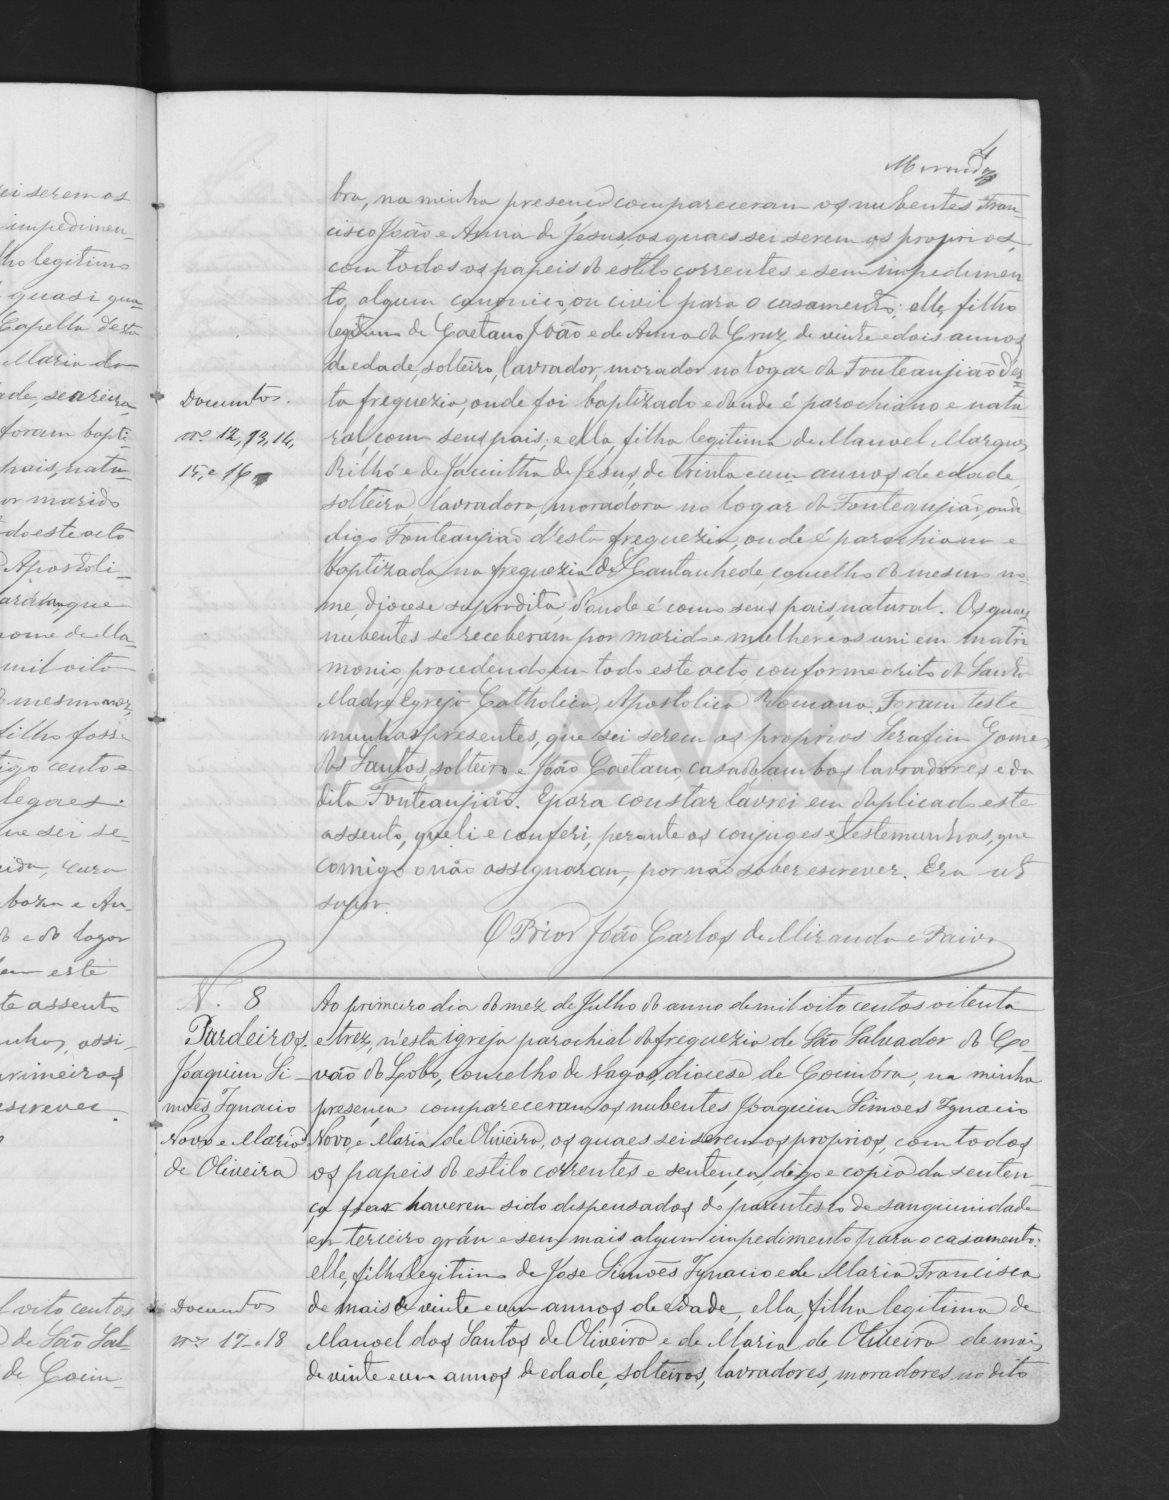 4
Miranda
bra, na minha presença compareceram os nubentes Fran-
cisco João e Anna de Jesus, os quaes sei serem os proprios,
com todos os papeis do estilo correntes e sem impedimen
to algum canonico, ou civil para o casamento; elle, filho
legitimo de Caetano João e de Anna da Cruz, de vinte e dois annos
de edade, solteiro, lavrador, morador no logar da Fonteanjião d'es-
ta freguezia, onde foi baptizado e donde é parochiano e natu
ral com seus pais; e ella, filha legitima de Manoel Marques
Rilhó e de Jacintha de Jesus, de trinta e um annos de edade,
solteira, lavradora, moradora no logar da Fonteanjião, onde
digo Fonteanjião d'esta freguezia, onde é parochiana e
baptizada na freguezia de Cantanhede, concelho do mesmo no
me, diocese supradita, d'onde é com seus pais, natural. Os quaes
nubentes se receberam por marido e mulher e os uni em matri
monio, procedendo em todo este acto conforme o rito da Santa
Madre Egreja Catholica, Apostolica Romana. Foram teste
munhas presentes, que sei serem os proprios Serafim Gomes
dos Santos, solteiro e João Caetano, casado, ambos lavradores e da
dita Fonteanjião. E para constar lavrei em duplicado este
assento, que li e conferi, perante os conjuges e testemunhas, que
comigo o não assignaram, por não saber escrever. Era ut
supr.
O Prior João Carlos de Miranda e Paiva
Documentos.
nos 12, 13, 14,
15, e 16
N. 8
Pardeiros.
Joaquim Si-
mões Ignacio
Novo e Maria
de Oliveira
Documentos
nos 17 e 18
Ao primeiro dia do mez de Julho do anno de mil oito centos oitenta
e trez, n'esta igreja parochial da freguezia de São Salvador do Co-
vão do Lobo, concelho de Vagos, diocese de Coimbra, na minha
presença compareceram os nubentes Joaquim Simoes Ignacio
Novo, e Maria de Oliveira, os quaes sei serem os proprios, com todos
os papeis do estilo correntes e sentença, digo e copia da senten-
ça por haverem sido dispensados do parentesco de sanguinidade
em terceiro gráu e sem mais algum impedimento para o casamento:
elle, filho legitimo de Jose Simões Ignacio e de Maria Francisca
de mais de vinte e um annos de edade, ella, filha legitima de
Manoel dos Santos de Oliveira e de Maria de Oliveira de mais
de vinte e um annos de edade, solteiros, lavradores, moradores no dito